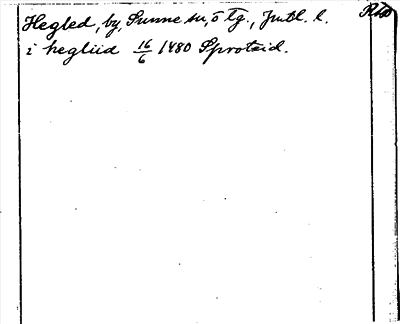 Hegled, by, Sunne sn, ö tg., Jmtl. l.
i hegliid 16/6 1480 Sprotzid.